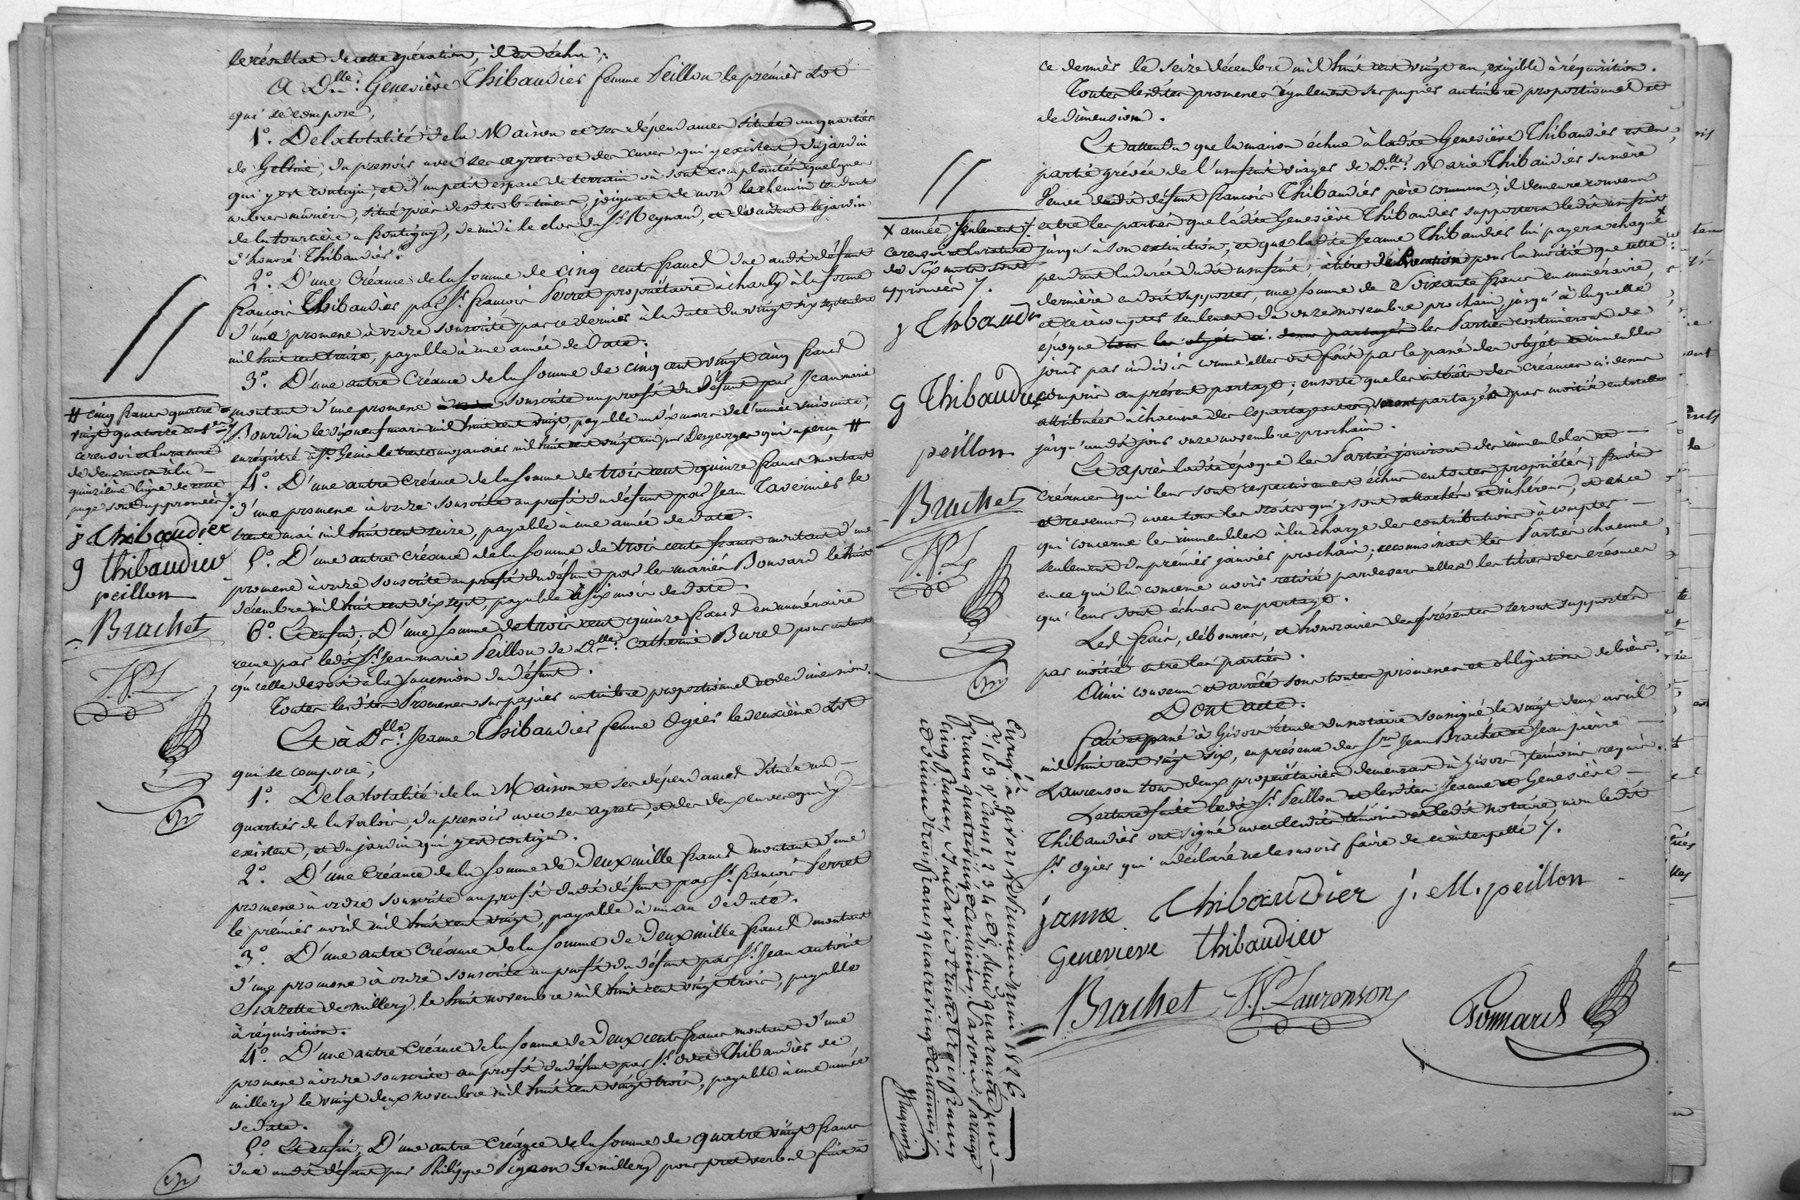 le résultat de cette opération, il est échu;
A Dlle. Geneviève Thibaudier femme Peillon le premier Lot
qui se compose;
1°. De la totalité de la Maison et ses dépendances située au quartier
de, du pressoir avec ses agrets et des cuves qui y existent du jardin
qui y est contigu, et d'un petit espace de terrain où sont complantés quelques
arbres muriers, situé près desdits batimens, joignant de nord le chemin tendant
de la fourtière a Montigny, de midi le clos du Sr. Meynard, et de le jardin
d'honoré Thibaudier.
2°. D'une Créance de la somme de cinq cents francs due audit défunt
françois Thibaudier par Sr. françois Perret propriétaire à charly à la forme
d'une promesse à ordre souscrite par ce dernier à la date du vingt six septembre
mil huit cent treize, payable à une année de date.
3°. D'une autre Créance de la somme de cinq cent vingt cinq francs
montant d'une promesse à ordre souscrite au profit du défunt par Jean marie
Bourdin le dix neuf mars mil huit cent vingt, payable au six mars de l'année suivante,
enregistré à St. Genis le trente un janvier mil huit cent vingt un par qui a perçu #
4°. D'une autre Créance de la somme de trois cent quinze francs montant
d'une promesse à ordre souscrite au profit du défunt par Jean Tavernier le
trente mai mil huit cent seize, payable à une année de date.
5°. D'une autre Créance de la somme de trois cents francs montant d'une
promesse à ordre souscrite au profit du défunt par les mariés Bonnard le huit
décembre mil huit cent dix sept, payable à six mois de date.
6°. Et enfin; D'une somme de trois cent quinze francs en numéraire
reçue par ledit Sr. Jean marie Peillon de Dlle. Catherine Burel pour autant
qu'elle devoit à la succession du défunt.
Toutes lesdites Promesses sur papier au timbre proportionnel et de dimension.
Et à Dlle. Jeanne Thibaudier femme Ogier le deuxième Lot
qui se compose;
1°. De la totalité de la Maison et ses dépendances située au
quartier de la Valois, du pressoir avec ses agrets, et des deux cuves qui y
existent, et du jardin qui y est contigu.
2°. D'une Créance de la somme de Deux mille francs montant d'une
promesse à ordre souscrite au profit dudit défunt par Sr. françois Perret
le premier avril mil huit cent vingt, payable à un an de date.
3°. D'une autre Créance de la somme de Deux mille francs montant
d'une promesse à ordre souscrite au profit du défunt par Sr. Jean antoine
Chazette de millery le huit novembre mil huit cent vingt trois, payable
à réquisition.
4°. D'une autre Créance de la somme de Deux cents francs montant d'une
promesse à ordre souscrite au profit du défunt par Sr. Thibaudier de
millery le vingt deux novembre mil huit cent vingt trois, payable à une année
de date.
5°. Et enfin; D'une autre Créance de la somme de quatre vingt francs
due audit défunt par Philippe Pignon de millery pour prêt verbal fait à
# cinq francs quatre
vingt quatorze cent.es
ce renvoi et la rature
de deux mots à la
quinzième ligne de cette
page sont approuvés
j Thibaudier
g thibaudiev
peillon
Brachet
J.P.L
ce dernier le seize décembre mil huit cent vingt un, exigible à réquisition.
Toutes lesdites promesses également sur papier au timbre proportionnel et
de dimension.
Et attendu que la maison échue à ladite Geneviève Thibaudier est en
partie grévée de l'usufruit viager de Dlle. Marie Thibaudier sa mère
Veuve dudit défunt françois Thibaudier père commun; il demeure convenu
entre les parties que ladite Geneviève Thibaudier supportera ledit usufruit
jusqu'à son extinction, et que ladite Jeanne Thibaudier lui payera chaque x
pendant la durée dudit usufruit, à titre de pour la moitié que cette
dernière en doit supporter, une somme de Soixante francs en numéraire,
et ce à compter seulement du onze novembre prochain jusqu'à laquelle
époque les Parties continueront de
jouir par indivis comme elles ont fait par le passé des objets et immeubles
compris au présent partage; ensorte que les intérêts des Créances ci-dessus
attribuées à chacune des copartageantes, seront partagés par moitié entr'elles
jusqu'audit jour onze novembre prochain.
Et après ladite époque les Parties jouiront des immeubles et
Créances qui leur sont respectivement échus en toutes propriétés, fruits
et revenus, avec tous les droits qui y sont attachés et inhérens, et en ce
qui concerne les immeubles à la charge des contributions à compter
seulement du premier janvier prochain; reconnoissant les Parties chacune
en ce qui la concerne avoir retiré pardevers elles les titres des créances
qui leur sont échues en partage.
Les frais, débourrés, et honoraires des présentes seront supportés
par moitié entre les parties.
Ainsi convenu et arrêté sous toutes promesses et obligations de biens.
Dont acte.
fait et passé à Givors étude du notaire soussigné le vingt deux avril
mil huit cent vingt six, en présence des Srs. Jean Brachet et Jean pierre
Laurenson tous deux propriétaires demeurant à Givors, témoins requis.
Lecture faite ledit Sr. Peillon et lesdites Jeanne et Geneviève
Thibaudier ont signé avec lesdits témoins et ledit notaire, non ledit
Sr. Ogier qui a déclaré ne le savoir faire de ce interpellé.
janne Thibaudier j. M. peillon
Genevieve thibaudiev
Brachet J.P. Laurenson
Ponnard
x année seulement
ce renvoi et la rature
de six mots sont
approuvés
j Thibaudi
g Thibaudiev
peillon
Brachet
J.P.L
Enregé à givors le huit mai 1826
f° 163 v° cases 2 3 4 et 5, Reçu quarante un
francs quatre vingt centimes. Savoir: Partage
cinq francs,
et dixième trois francs quatre vingt centimes